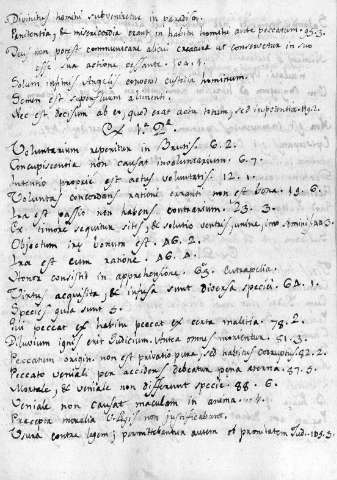 Divinitus homini subveniretur in paradiso.
Penitentia, & misericordia erant in habitu homini ante peccatum. 95. 3.
Deus non potest communicare alicui creaturæ ut conservetur in suo
esse sua actione cessante. 104. 1.
Solum infimi Angeli exercent custodia hominum.
Semen est superfluum alimenti.
Nec est decisum ab eo, quod erat actu totum, sed in potentia. 119. 2.
Ex 1ª. 2ª.
Voluntarium reperitur in Brutis. 6. 2.
Concupiscentia non causat involuntarium. 6. 7.
Intentio proprie est actus voluntatis. 12. 1.
Voluntas concordans rationi erranti non est bona. 19. 6.
Ira est passio non habens contrarium. 23. 3.
Ex timore sequitur sitis, & solutio ventris, urinæ, imo & seminis. 44. 3.
Objectum iræ bonum est. 46. 2.
Ira est cum ratione. 46. 4.
Honor consistit in apprehensione. 60. 5. Eutrapelia.
Virtus acquisita, & infusa sunt diversa speciei. 63. 4.
Species gulæ sunt 5.
Qui peccat ex habitu peccat ex certa malitia. 78. 2.
Diluvium ignis erit Iudicium. Antea omnes morientur. 81. 3.
Peccatum origin. non est privatio pura, sed habitus corruptus. 82. 1.
Peccato veniali per accidens debetur pena æterna. 87. 5.
Mortale, & veniale non differunt specie. 88. 6.
Veniale non causat maculam in anima.
Præcepta moralia V. legis non justificabant.
Usura contra legem; permittebantur autem ob pronitatem Iud. 105. 3.